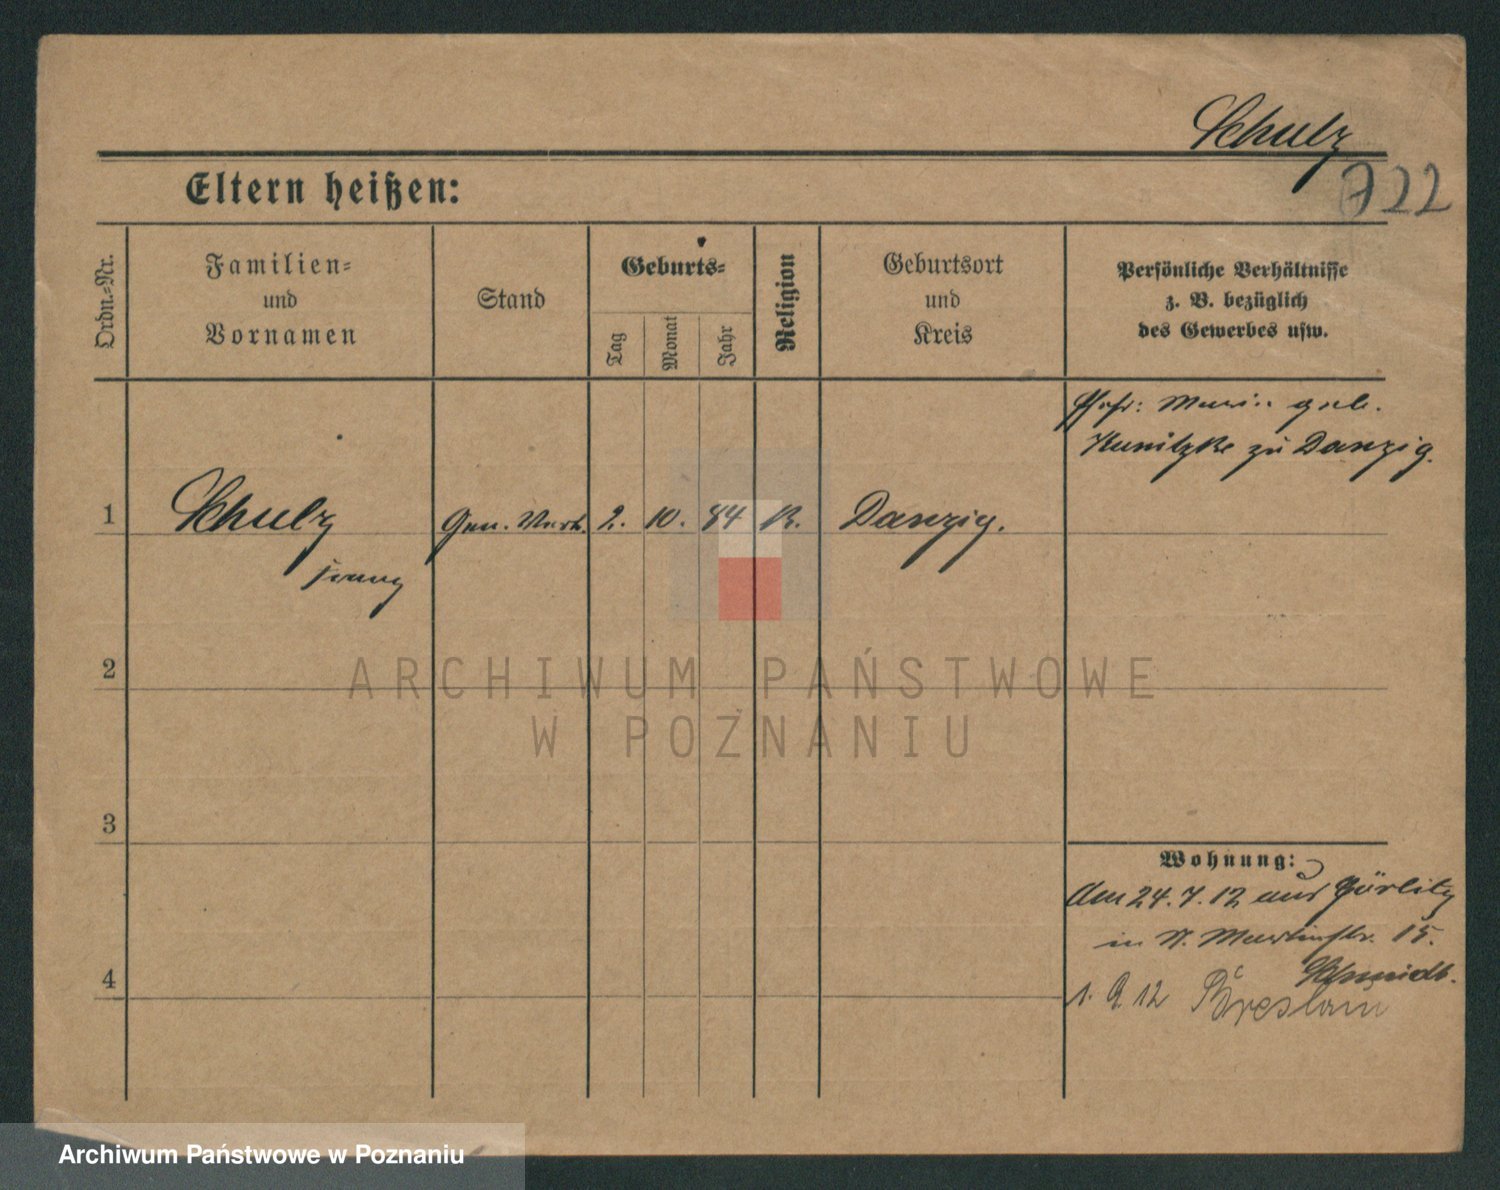 Schulz
722
Eltern heißen:
Ordn.-Nr.
Familien-
und
Vornamen
Stand
Geburts-
Tag
Monat
Jahr
Religion
Geburtsort
und
Kreis
Persönliche Verhältnisse
z. B. bezüglich
des Gewerbes usw.
Ehefr: Marie geb.
Kunitzke zu Danzig.
1
Schulz 2. 10. 84 K. Danzig.
Franz
2
ARCHIWUM PAŃSTWOWE
W POZNANIU
3
Wohnung:
Am 24. 7. 12 aus Görlitz
in St. Martinstr. 15.
Schmidt.
4
1. 9. 12 Breslau
Archiwum Państwowe w Poznaniu